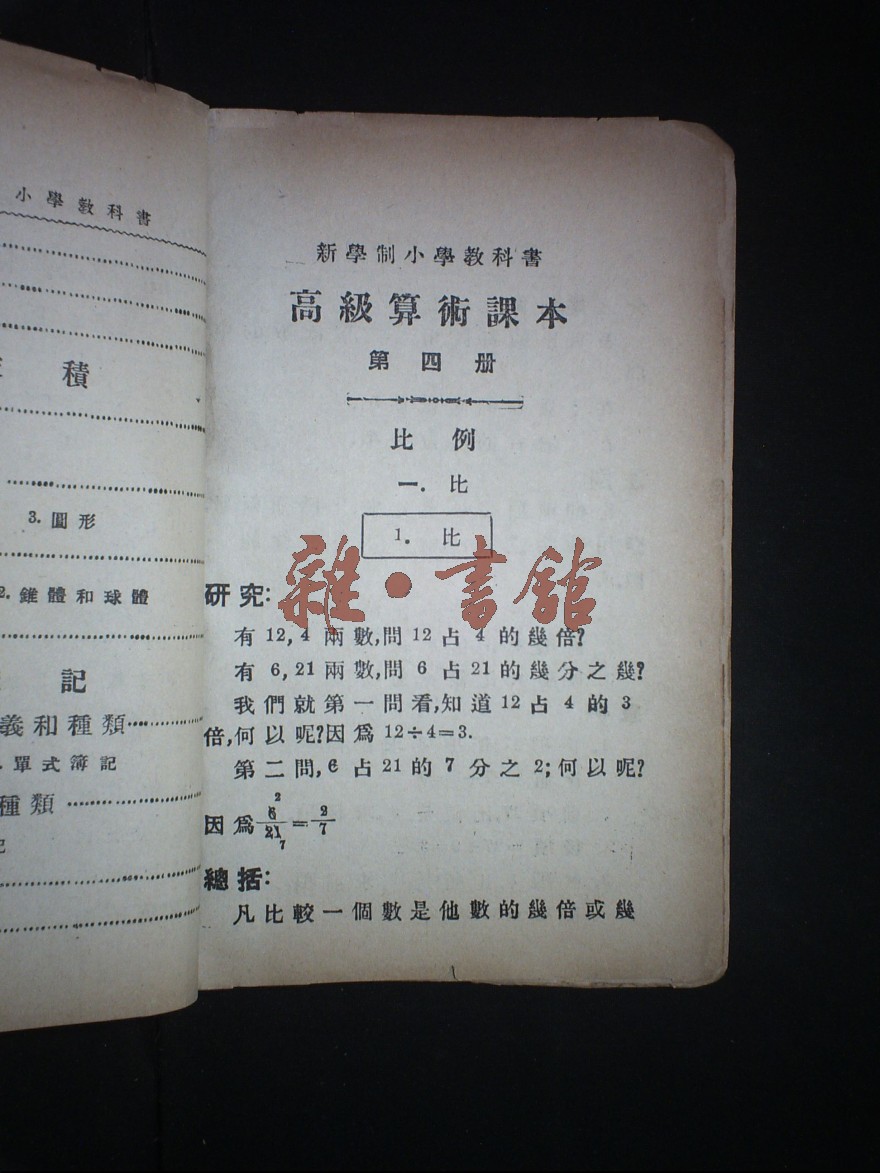 小學教科書
積
3. 圓形
2. 錐體和球體
記
義和種類
單式簿記
種類
新學制小學教科書
高級算術課本
第四册
比例
一. 比
1. 比
雜·書館
研究:
有 12, 4 兩數,問 12 占 4 的幾倍?
有 6, 21 兩數,問 6 占 21 的幾分之幾?
我們就第一問看,知道 12 占 4 的 3
倍,何以呢?因爲 12÷4=3.
第二問, 6 占 21 的 7 分之 2; 何以呢?
因爲 6/21 2 7 = 2/7
總括:
凡比較一個數是他數的幾倍或幾